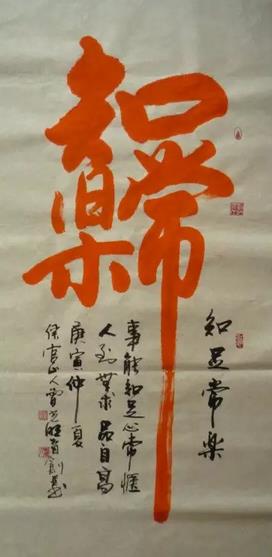 知足常樂
知足常樂
事能知足心常愜
人到無求品自高
庚寅仲夏